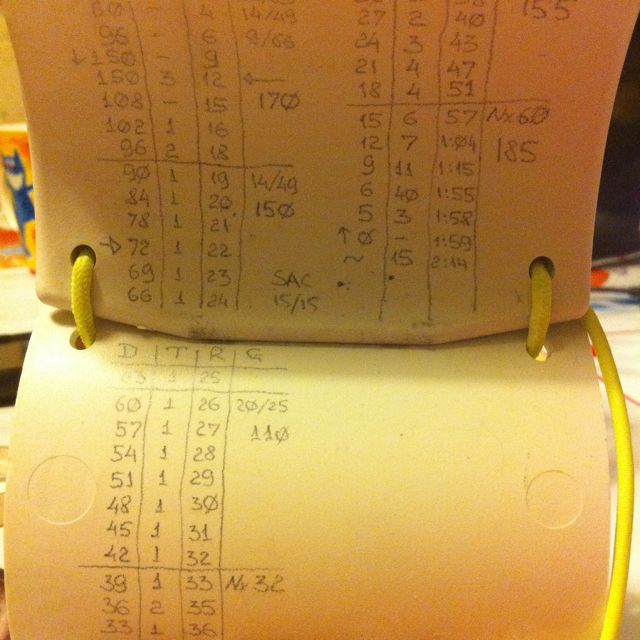 4 14/49
96 - 6 9/66
↓150 - 9
150 3 12 ←
108 - 15 170
102 1 16
96 2 18
90 1 19 14/49
84 1 20 150
78 1 21
→ 72 1 22
69 1 23 SAC
66 1 24 15/15
155
27 2 40
24 3 43
21 4 47
18 4 51
15 6 57 Nx60
12 7 1:04 185
9 11 1:15
6 40 1:55
5 3 1:58
↑ 0 - 1:59
~ 15 2:14
D T R G
63 1 25
60 1 26 20/25
57 1 27 110
54 1 28
51 1 29
48 1 30
45 1 31
42 1 32
39 1 33 Nx 32
36 2 35
33 1 36